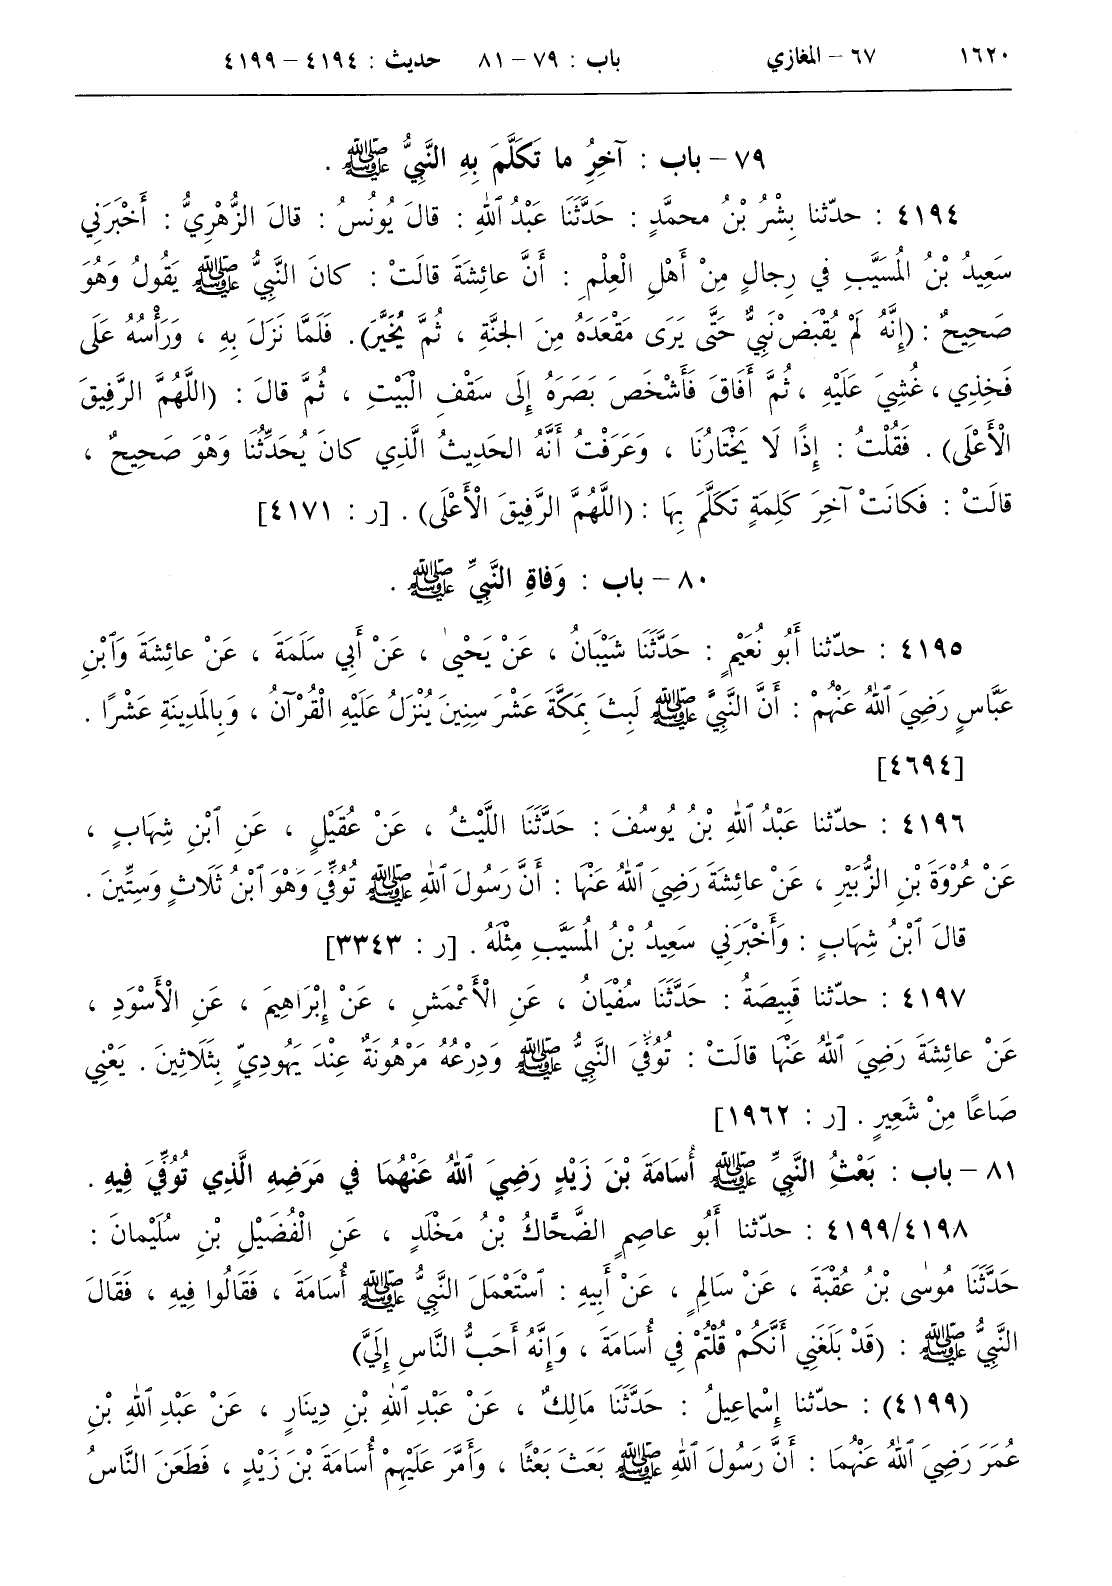 ١٦٢٠ ٦٧ – المغازي باب : ٧٩ – ٨١ حديث : ٤١٩٤ – ٤١٩٩
٧٩ – باب : آخِرِ ما تَكَلَّمَ بِهِ النَّبِيُّ ﷺ .
٤١٩٤ : حدّثنا بِشْرُ بْنُ محمَّدٍ : حَدَّثَنَا عَبْدُ ٱللهِ : قالَ يُونُسُ : قالَ الزُّهْرِيُّ : أَخْبَرَنِي
سَعِيدُ بْنُ المُسَيَّبِ في رِجالٍ مِنْ أَهْلِ الْعِلْمِ : أَنَّ عائِشَةَ قالَتْ : كانَ النَّبِيُّ ﷺ يَقُولُ وَهُوَ
صَحِيحٌ : (إِنَّهُ لَمْ يُقْبَضْ نَبِيٌّ حَتَّى يَرَى مَقْعَدَهُ مِنَ الجَنَّةِ ، ثُمَّ يُخَيَّرَ). فَلَمَّا نَزَلَ بِهِ ، وَرَأْسُهُ عَلَى
فَخِذِي ، غُشِيَ عَلَيْهِ ، ثُمَّ أَفَاقَ فَأَشْخَصَ بَصَرَهُ إِلَى سَقْفِ الْبَيْتِ ، ثُمَّ قالَ : (اللَّهُمَّ الرَّفِيقَ
الْأَعْلَى) . فَقُلْتُ : إِذًا لَا يَخْتَارُنَا ، وَعَرَفْتُ أَنَّهُ الحَدِيثُ الَّذِي كانَ يُحَدِّثُنَا وَهْوَ صَحِيحٌ ،
قالَتْ : فَكانَتْ آخِرَ كَلِمَةٍ تَكَلَّمَ بِهَا : (اللَّهُمَّ الرَّفِيقَ الْأَعْلَى) . [ر : ٤١٧١]
٨٠ – باب : وَفاةِ النَّبِيِّ ﷺ .
٤١٩٥ : حدّثنا أَبُو نُعَيْمٍ : حَدَّثَنَا شَيْبَانُ ، عَنْ يَحْيىٰ ، عَنْ أَبِي سَلَمَةَ ، عَنْ عائِشَةَ وَٱبْنِ
عَبَّاسٍ رَضِيَ ٱللهُ عَنْهُمْ : أَنَّ النَّبِيَّ ﷺ لَبِثَ بِمَكَّةَ عَشْرَ سِنِينَ يُنْزَلُ عَلَيْهِ الْقُرْآنُ ، وَبِالمَدِينَةِ عَشْرًا .
[٤٦٩٤]
٤١٩٦ : حدّثنا عَبْدُ ٱللهِ بْنُ يُوسُفَ : حَدَّثَنَا اللَّيْثُ ، عَنْ عُقَيْلٍ ، عَنِ ٱبْنِ شِهَابٍ ،
عَنْ عُرْوَةَ بْنِ الزُّبَيْرِ ، عَنْ عائِشَةَ رَضِيَ ٱللهُ عَنْهَا : أَنَّ رَسُولَ ٱللهِ ﷺ تُوُفِّيَ وَهْوَ ٱبْنُ ثَلَاثٍ وَسِتِّينَ .
قالَ ٱبْنُ شِهَابٍ : وَأَخْبَرَنِي سَعِيدُ بْنُ المُسَيَّبِ مِثْلَهُ . [ر : ٣٣٤٣]
٤١٩٧ : حدّثنا قَبِيصَةُ : حَدَّثَنَا سُفْيَانُ ، عَنِ الْأَعْمَشِ ، عَنْ إِبْرَاهِيمَ ، عَنِ الْأَسْوَدِ ،
عَنْ عائِشَةَ رَضِيَ ٱللهُ عَنْهَا قالَتْ : تُوُفِّيَ النَّبِيُّ ﷺ وَدِرْعُهُ مَرْهُونَةٌ عِنْدَ يَهُودِيٍّ بِثَلَاثِينَ . يَعْنِي
صَاعًا مِنْ شَعِيرٍ . [ر : ١٩٦٢]
٨١ – باب : بَعْثُ النَّبِيِّ ﷺ أُسَامَةَ بْنَ زَيْدٍ رَضِيَ ٱللهُ عَنْهُمَا في مَرَضِهِ الَّذِي تُوُفِّيَ فِيهِ .
٤١٩٩/٤١٩٨ : حدّثنا أَبُو عاصِمٍ الضَّحَّاكُ بْنُ مَخْلَدٍ ، عَنِ الْفُضَيْلِ بْنِ سُلَيْمانَ :
حَدَّثَنَا مُوسٰى بْنُ عُقْبَةَ ، عَنْ سَالِمٍ ، عَنْ أَبِيهِ : ٱسْتَعْمَلَ النَّبِيُّ ﷺ أُسَامَةَ ، فَقَالُوا فِيهِ ، فَقَالَ
النَّبِيُّ ﷺ : (قَدْ بَلَغَنِي أَنَّكُمْ قُلْتُمْ في أُسَامَةَ ، وَإِنَّهُ أَحَبُّ النَّاسِ إِلَيَّ)
(٤١٩٩) : حدّثنا إِسْماعِيلُ : حَدَّثَنَا مَالِكٌ ، عَنْ عَبْدِ ٱللهِ بْنِ دِينَارٍ ، عَنْ عَبْدِ ٱللهِ بْنِ
عُمَرَ رَضِيَ ٱللهُ عَنْهُمَا : أَنَّ رَسُولَ ٱللهِ ﷺ بَعَثَ بَعْثًا ، وَأَمَّرَ عَلَيْهِمْ أُسَامَةَ بْنَ زَيْدٍ ، فَطَعَنَ النَّاسُ